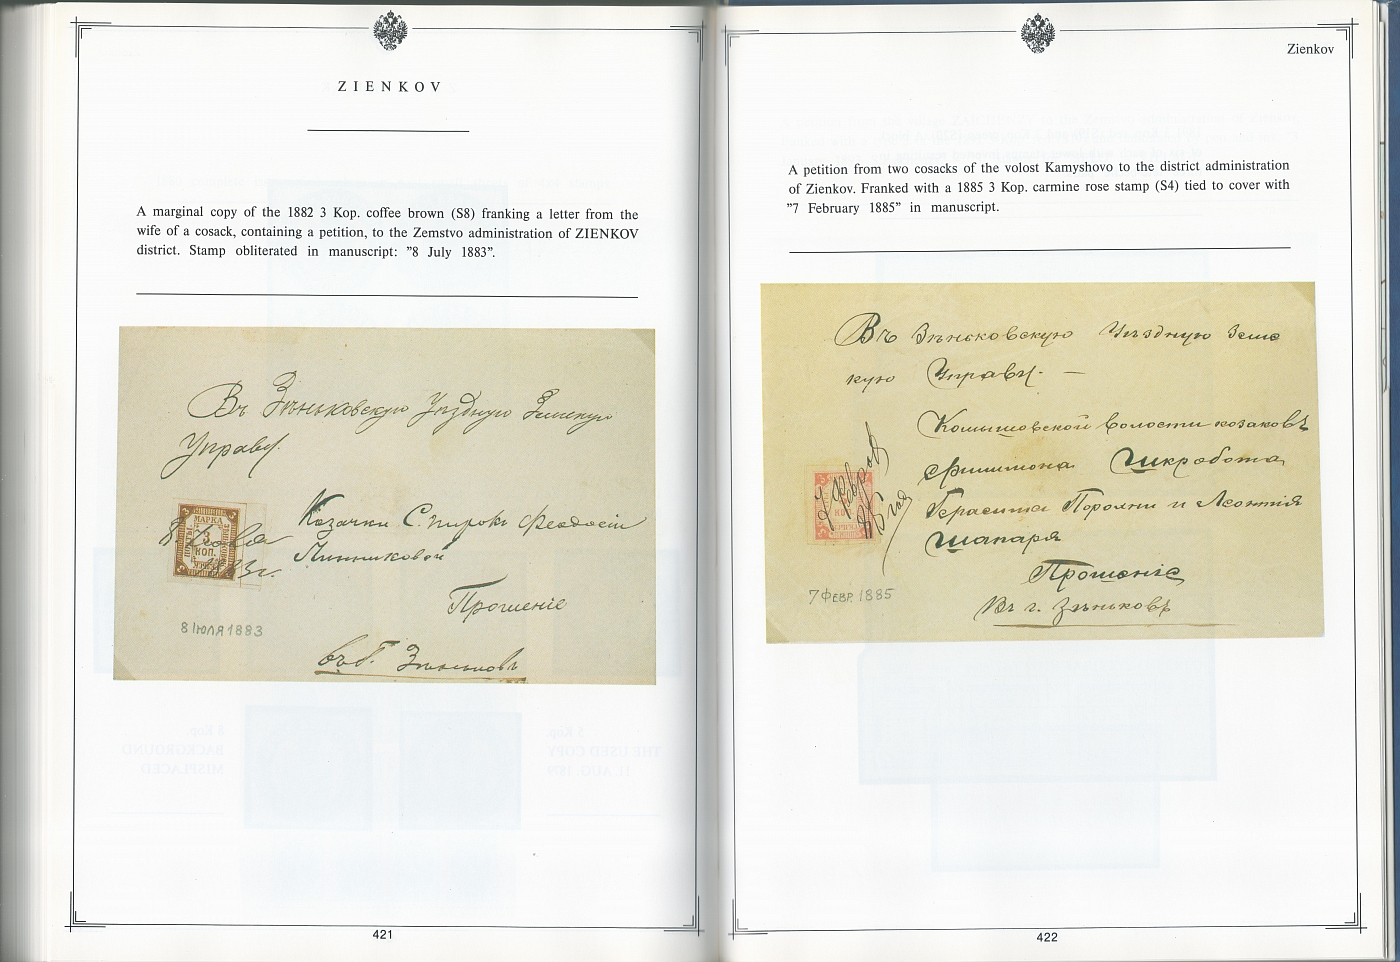 ZIENKOV
A marginal copy of the 1882 3 Kop. coffee brown (S8) franking a letter from the
wife of a cosack, containing a petition, to the Zemstvo administration of ZIENKOV
district. Stamp obliterated in manuscript: ”8 July 1883”.
Въ Зѣньковскую Уѣздную Земскую
Управу.
МАРКА
3
КОП.
Козачки Феодосіи
Прошеніе
8 ІЮЛЯ 1883
Зѣньковъ
421
Zienkov
A petition from two cosacks of the volost Kamyshovo to the district administration
of Zienkov. Franked with a 1885 3 Kop. carmine rose stamp (S4) tied to cover with
”7 February 1885” in manuscript.
Въ Зѣнсковскую Уѣздную Земс
кую Управу. —
Комышовской волости козаковъ
Филимона Шкробота
Герасима и Леонтія
Шапаря
Прошеніе
Въ г. Зѣньковъ
7 ФЕВР. 1885
422